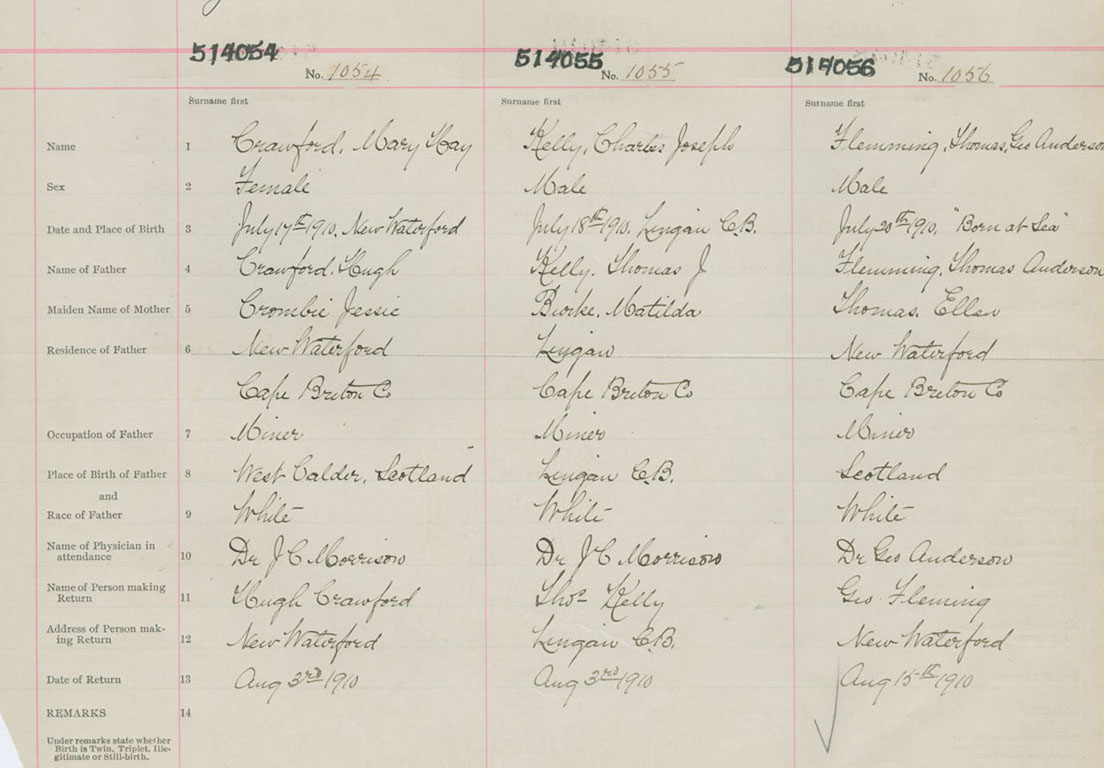 514054 514055 514056
No. 1054 No. 1055 No. 1056
Surname first Surname first Surname first
Name 1 Crawford, Mary Hay Kelly, Charles Joseph Flemming, Thomas, Geo Anderson
Sex 2 Female Male Male
Date and Place of Birth 3 July 17th 1910, New Waterford July 18th 1910, Lingan C.B. July 20th 1910, "Born at Sea"
Name of Father 4 Crawford, Hugh Kelly. Thomas J Flemming, Thomas Anderson
Maiden Name of Mother 5 Crombie Jessie Burke, Matilda Thomas. Ellen
Residence of Father 6 New Waterford Lingan New Waterford
Cape Breton Co Cape Breton Co Cape Breton Co
Occupation of Father 7 Miner Miner Miner
Place of Birth of Father 8 West Calder, Scotland Lingan C.B. Scotland
and
Race of Father 9 White White White
Name of Physician in
attendance 10 Dr J C Morrison Dr J C Morrison Dr Geo Anderson
Name of Person making
Return 11 Hugh Crawford Thos Kelly Geo Fleming
Address of Person mak-
ing Return 12 New Waterford Lingan C.B. New Waterford
Date of Return 13 Aug 3rd 1910 Aug 3rd 1910 Aug 15th 1910
REMARKS 14
Under remarks state whether
Birth is Twin, Triplet, Ille-
gitimate or Still-birth.